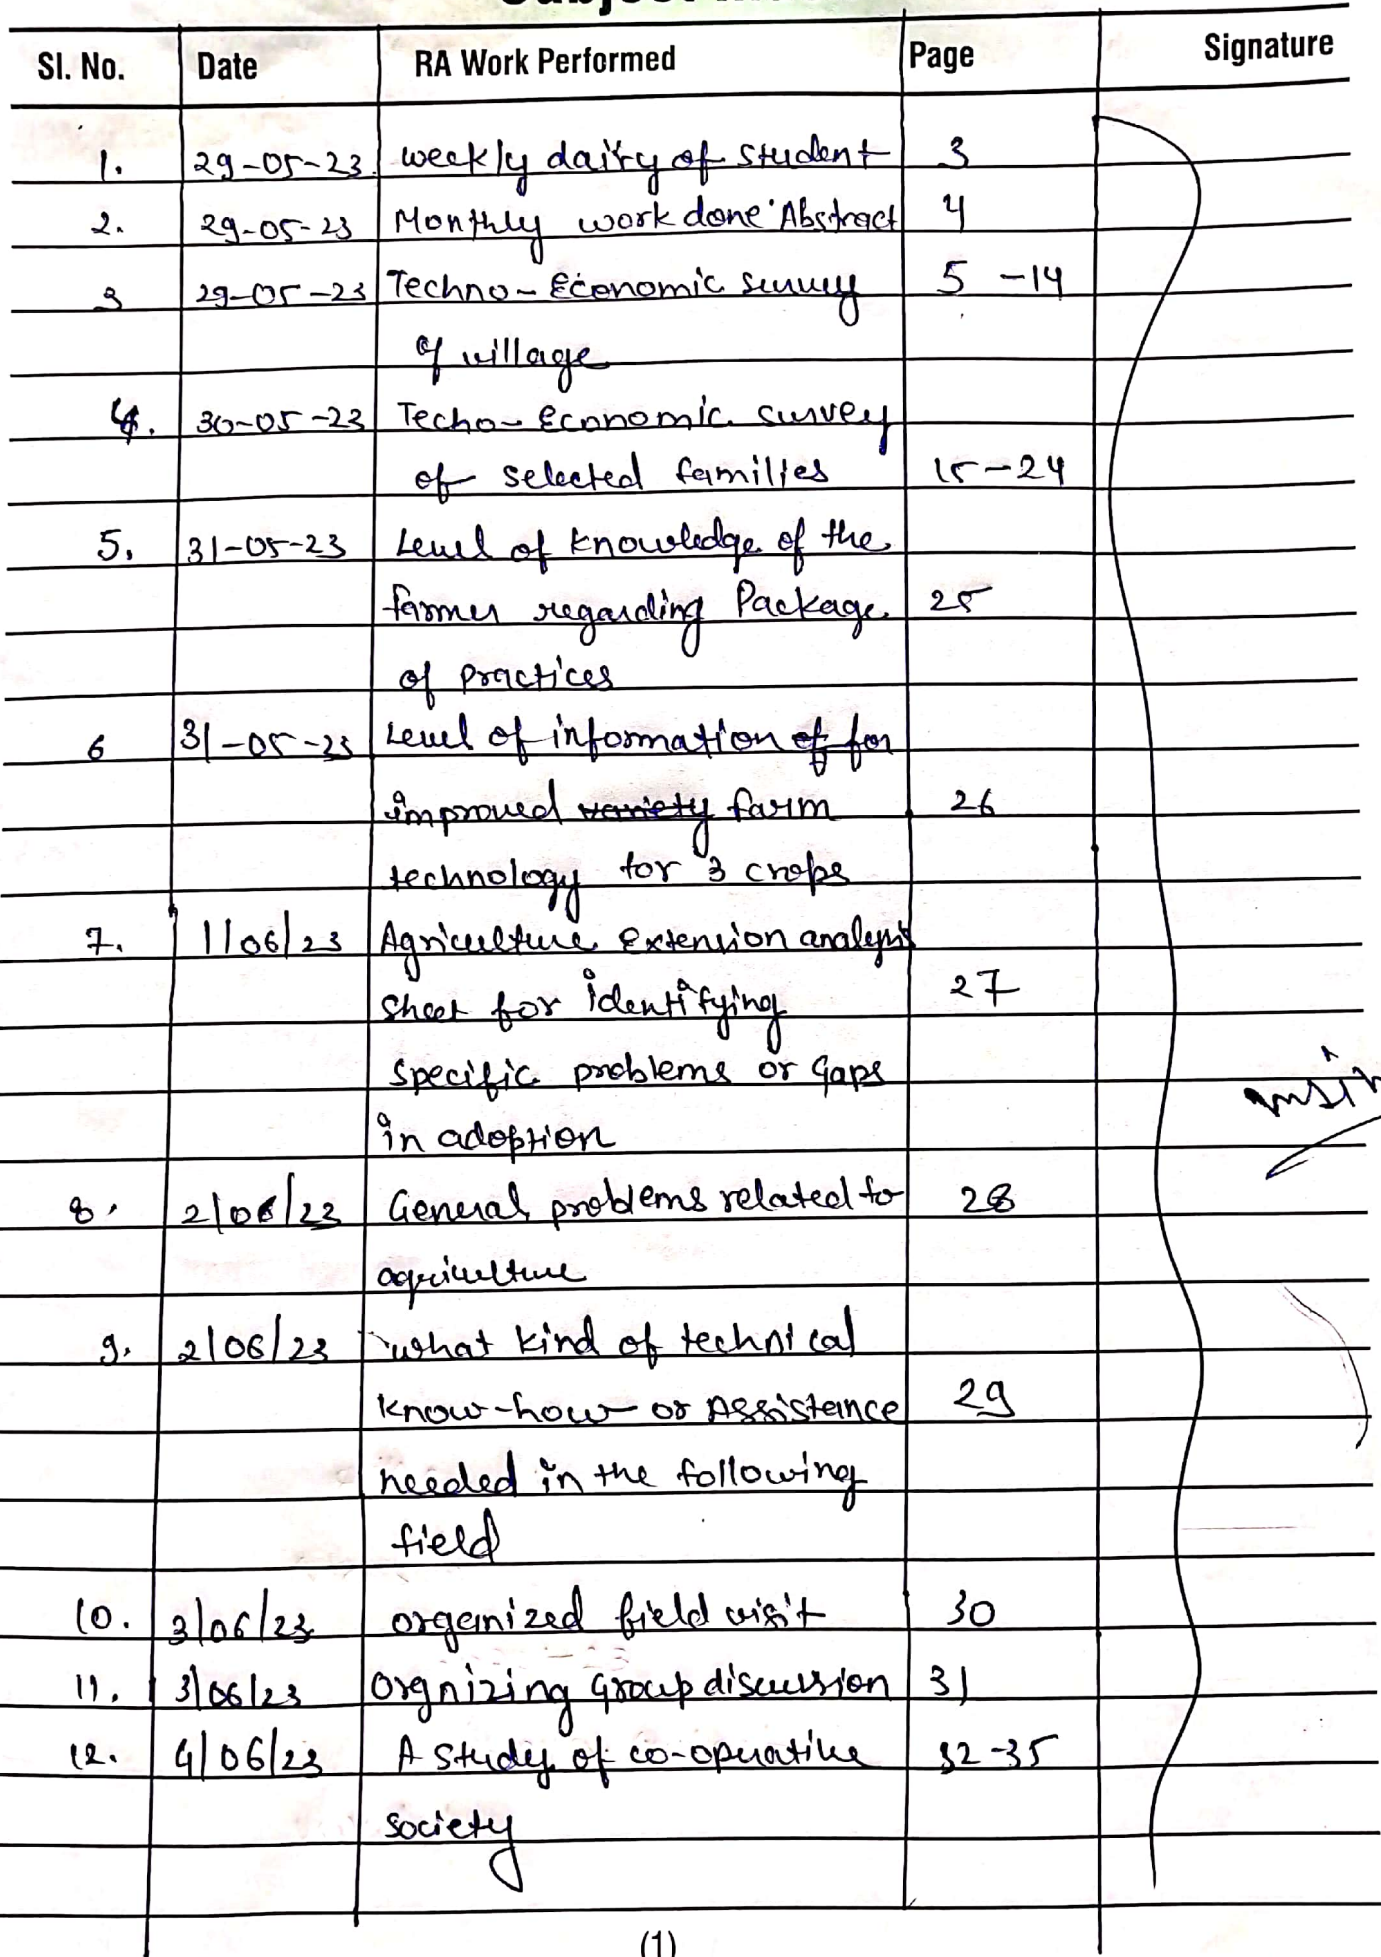 Sl. No. Date RA Work Performed Page Signature
1. 29-05-23 weekly dairy of student 3
2. 29-05-23 Monthly work done Abstract 4
3 29-05-23 Techno-Economic survey 5-14
of village
4. 30-05-23 Techo-Economic survey
of selected families 15-24
5. 31-05-23 Level of knowledge of the
farmer regarding Package 25
of practices
6 31-05-23 Level of information of for
improved variety farm 26
technology for 3 crops
7. 1/06/23 Agriculture Extension analysis
sheet for identifying 27
specific problems or gaps
in adoption
8. 2/06/23 General problems related to 28
agriculture
9. 2/06/23 what kind of technical
know-how or Assistance 29
needed in the following
field
10. 3/06/23 organized field visit 30
11. 3/06/23 orgnizing group discussion 31
12. 4/06/23 A study of co-operative 32-35
society
(1)